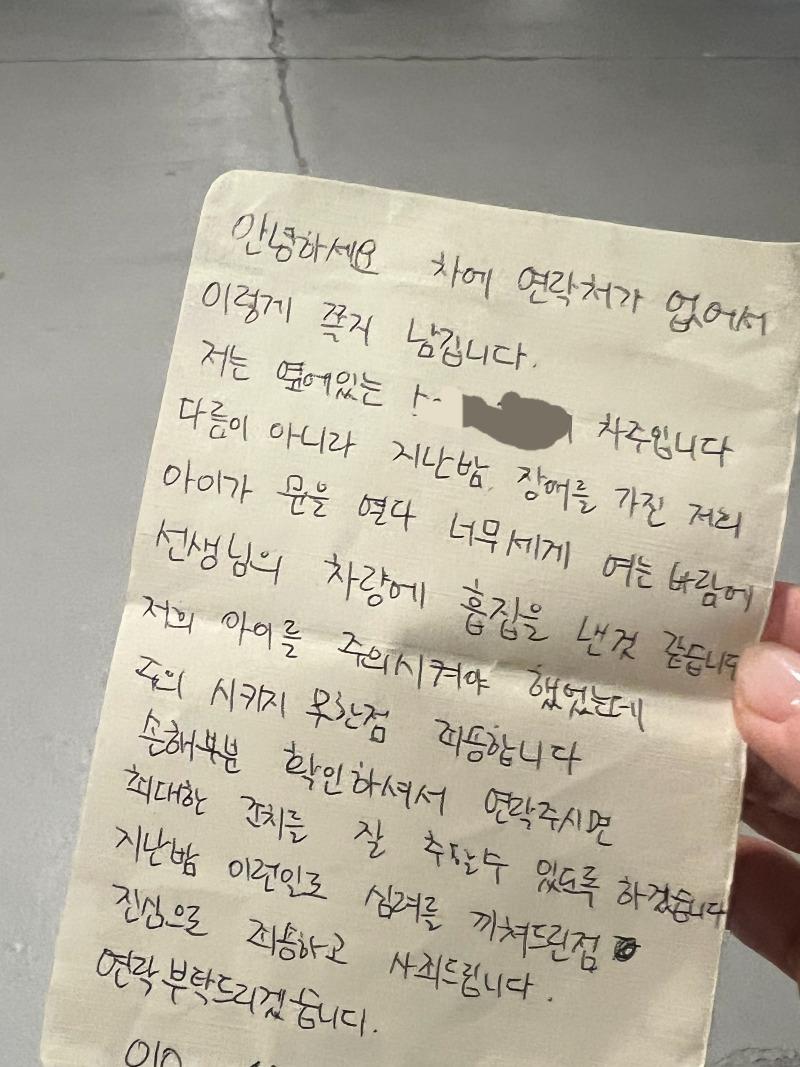 안녕하세요 차에 연락처가 없어서
이렇게 쪽지 남깁니다.
저는 옆에있는 차주입니다
다름이 아니라 지난밤, 장애를 가진 저희
아이가 문을 열다 너무세게 여는 바람에
선생님의 차량에 흠집을 낸것 같습니다
저희 아이를 주의시켜야 했었는데
주의 시키지 못한점 죄송합니다
손해부분 확인하셔서 연락주시면
최대한 조치를 잘 취할수 있도록 하겠습니다
지난밤 이런일로 심려를 끼쳐드린점
진심으로 죄송하고 사죄드립니다.
연락부탁드리겠습니다.
010